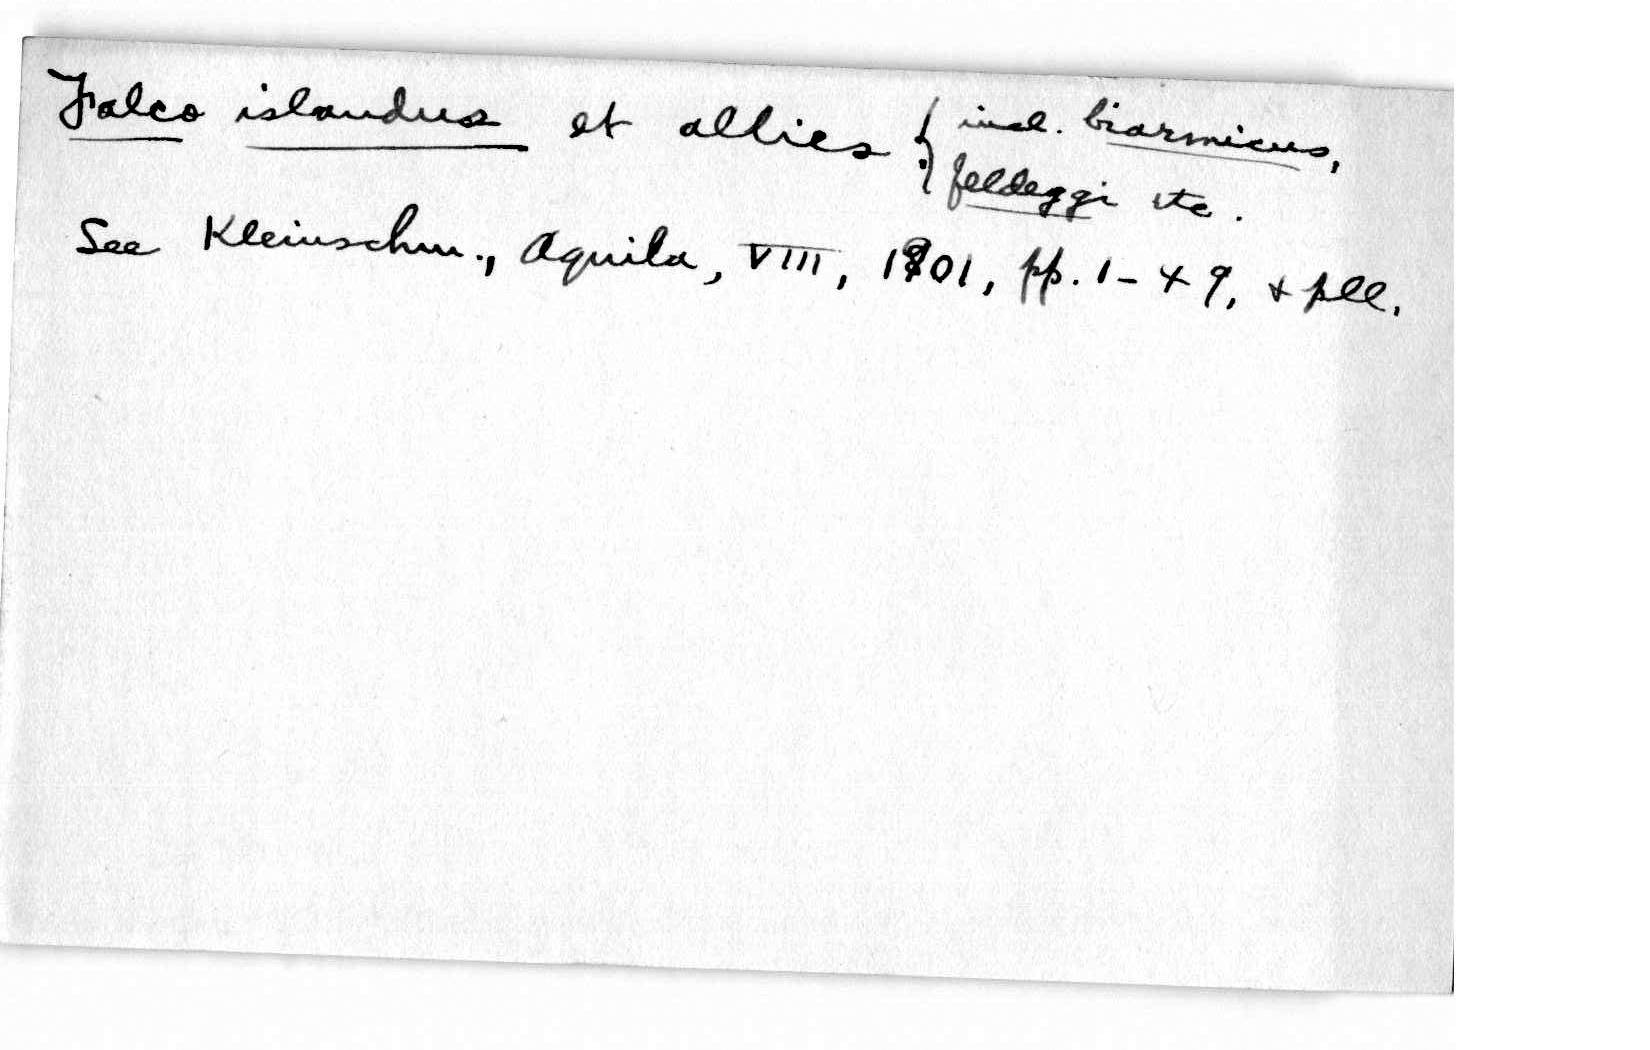 Falco islandus et allies { incl. biarmicus,
feldeggi etc.
See Kleinschm., Aquila, VIII, 1901, pp. 1-49, & pll.